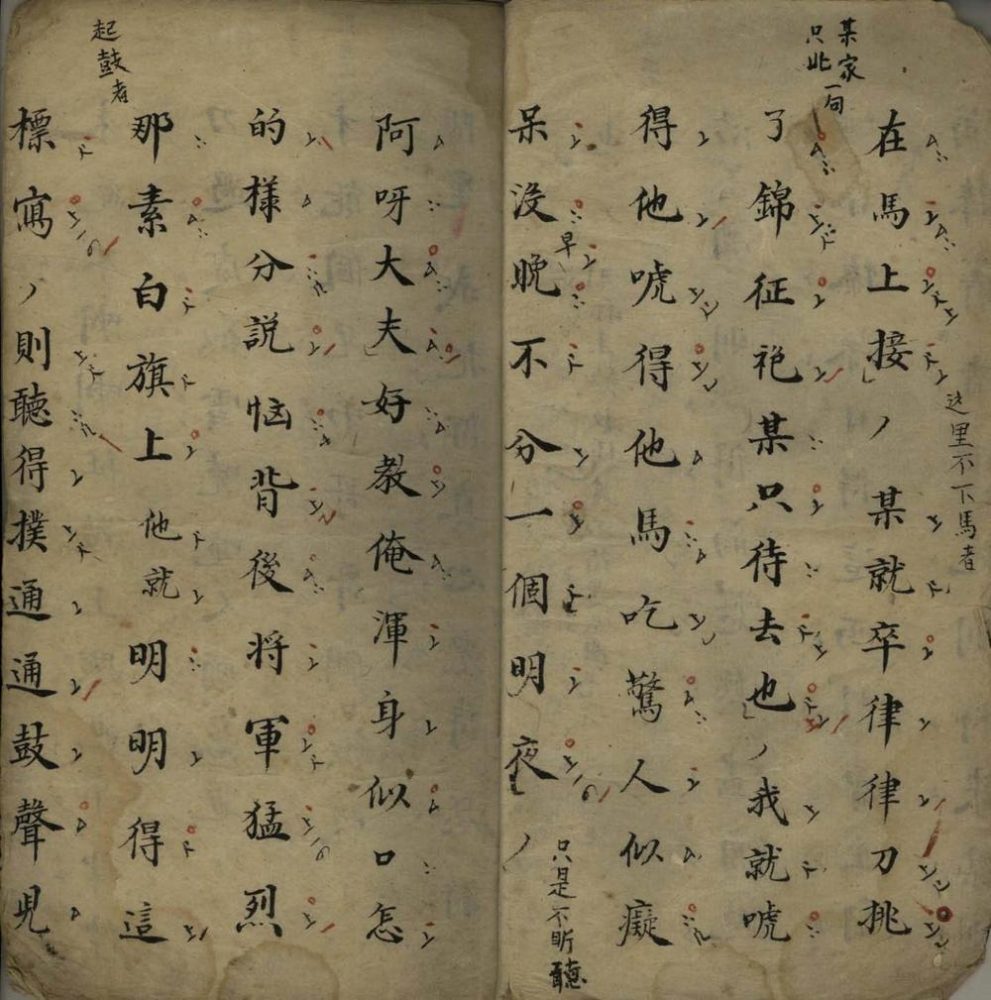 某家
只此一句
在馬上接丿某就卒律律刀挑
了錦征袍某只待去也丿我就唬
得他唬得他馬吃驚人似癡
呆沒早晚不分一個明夜丿
这里不下馬者
只是不听聽
阿呀大夫好教俺渾身似口怎
的樣分說惱背後将軍猛烈
那素白旗上他就明明得這
標寫丿則聽得撲通通鼓聲児
起鼓者